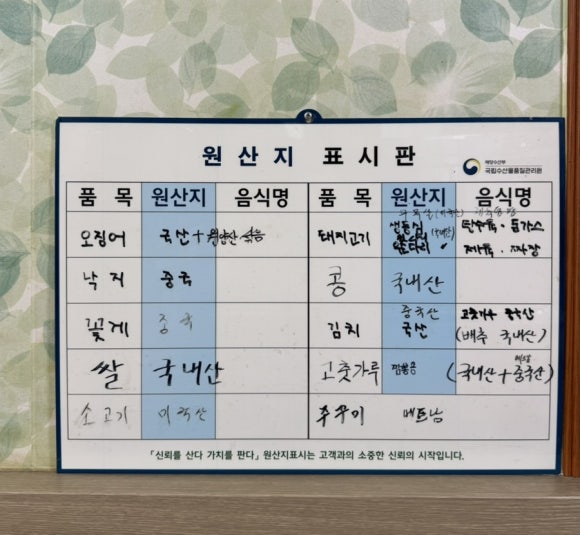 원산지 표시판
해양수산부
국립수산물품질관리원
품 목 원산지 음식명 품 목 원산지 음식명
오징어 국산 + 원양산 섞음
돼지고기 등심 (국내산) 탕수육 · 돈가스
뒷다리 제육 · 짜장
낙지 중국
콩 국내산
꽃게 중국
김치 중국산 고춧가루 중국산
국산 (배추 국내산)
쌀 국내산
고춧가루 (국내산 + 중국산)
소고기 미국산
쭈꾸미 베트남
「신뢰를 산다 가치를 판다」 원산지표시는 고객과의 소중한 신뢰의 시작입니다.